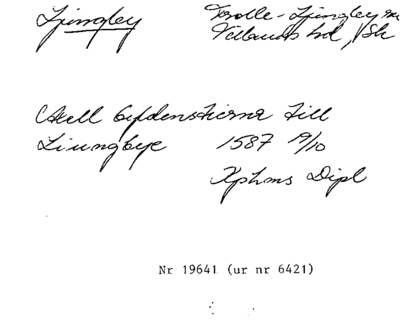 Ljungley Trolle-Ljungley sn
Villands hd, Sk
Axell Gyldenstierne till
Liungbye 1587 19/10
Xphers Dipl
Nr 19641 (ur nr 6421)